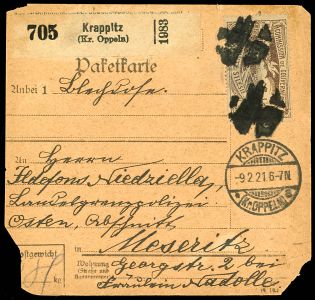 705 Krappitz
(Kr. Oppeln)
1983
Paketkarte
Anbei 1 Blechdose.
An Herrn
Ildefons Niedziella,
Landesgrenzpolizei
Osten, Abschnitt
Meseritz
Postgewicht
kg
Wohnung
(Straße und
Hausnummer)
Georgstr. 2 bei
Fräulein Nadolle
KRAPPITZ
-9.2.21.6-7N
(Kr. OPPELN)